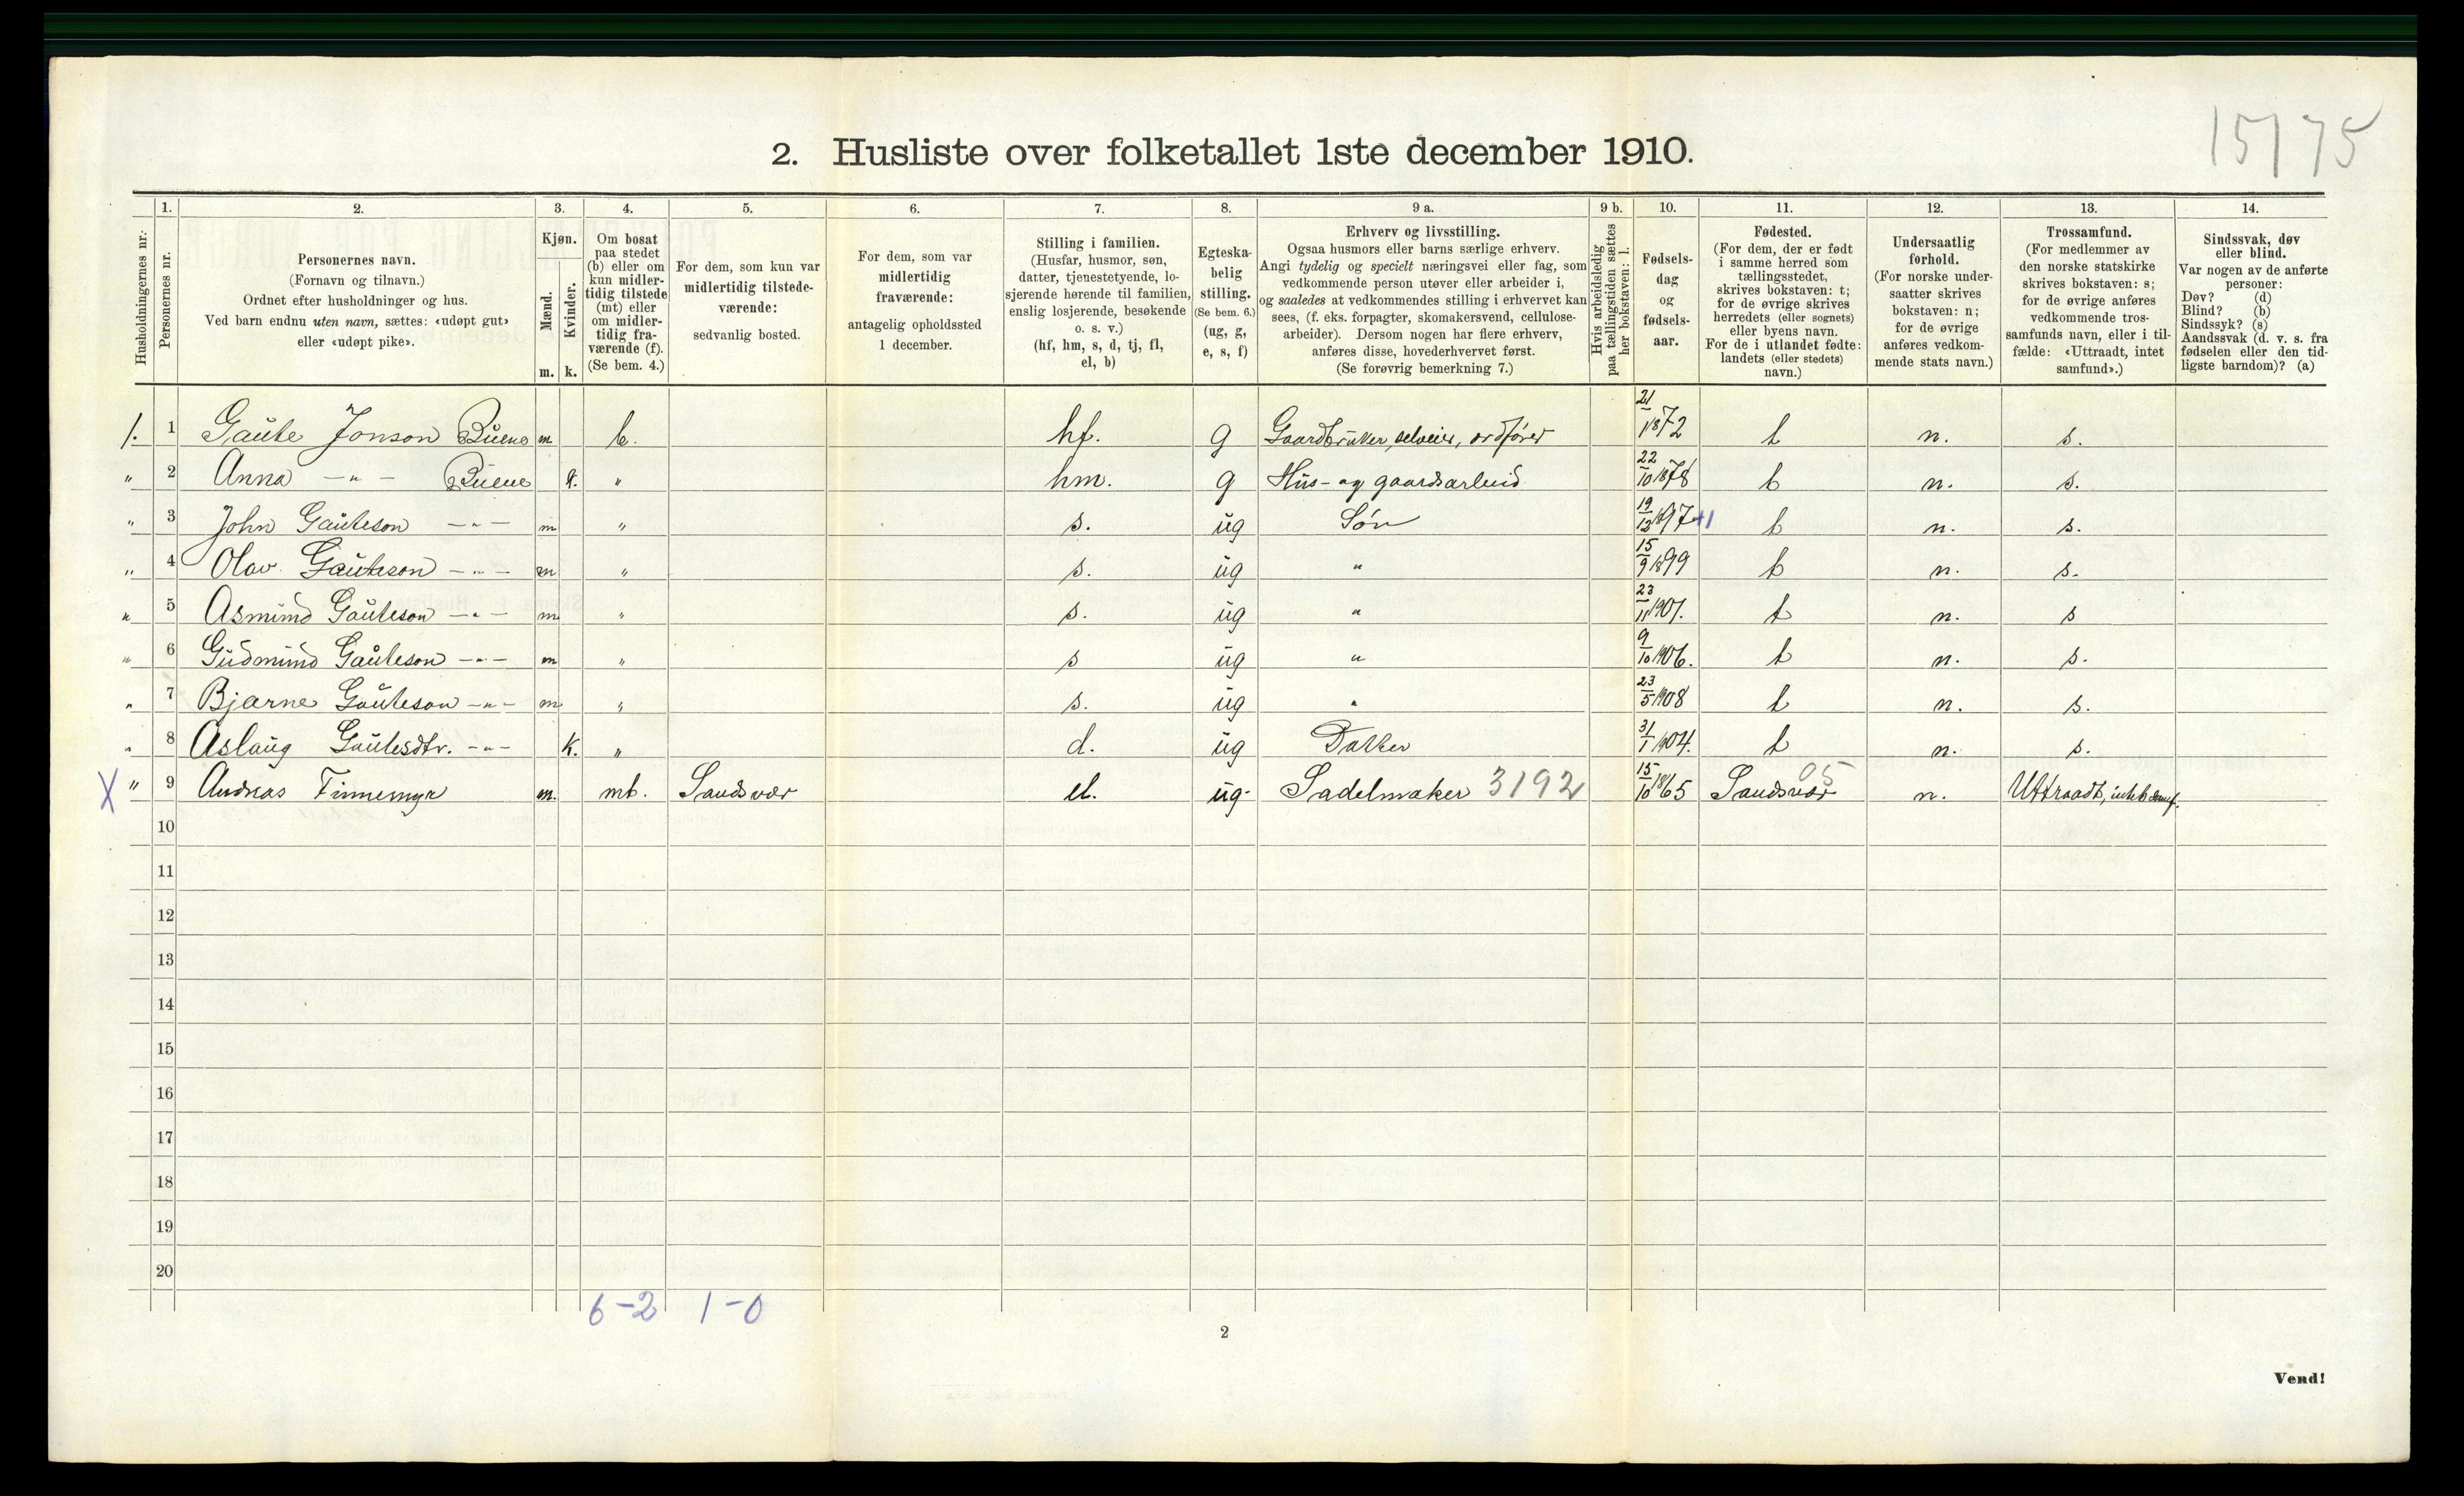 15175
2. Husliste over folketallet 1ste december 1910.
1. 2. 3. 4. 5. 6. 7. 8. 9 a. 9 b. 10. 11. 12. 13. 14.
Husholdningernes nr.
Personernes nr.
Personernes navn.
(Fornavn og tilnavn.)
Ordnet efter husholdninger og hus.
Ved barn endnu uten navn, sættes: «udøpt gut»
eller «udøpt pike».
Kjøn.
Mænd.
Kvinder.
m. k.
Om bosat
paa stedet
(b) eller om
kun midler-
tidig tilstede
(mt) eller
om midler-
tidig fra-
værende (f).
(Se bem. 4.)
For dem, som kun var
midlertidig tilstede-
værende:
sedvanlig bosted.
For dem, som var
midlertidig
fraværende:
antagelig opholdssted
1 december.
Stilling i familien.
(Husfar, husmor, søn,
datter, tjenestetyende, lo-
sjerende hørende til familien,
enslig losjerende, besøkende
o. s. v.)
(hf, hm, s, d, tj, fl,
el, b)
Egteska-
belig
stilling.
(Se bem. 6.)
(ug, g,
e, s, f)
Erhverv og livsstilling.
Ogsaa husmors eller barns særlige erhverv.
Angi tydelig og specielt næringsvei eller fag, som
vedkommende person utøver eller arbeider i,
og saaledes at vedkommendes stilling i erhvervet kan
sees, (f. eks. forpagter, skomakersvend, cellulose-
arbeider). Dersom nogen har flere erhverv,
anføres disse, hovederhvervet først.
(Se forøvrig bemerkning 7.)
Hvis arbeidsledig
paa tællingstiden sættes
her bokstaven: l.
Fødsels-
dag
og
fødsels-
aar.
Fødested.
(For dem, der er født
i samme herred som
tællingsstedet,
skrives bokstaven: t;
for de øvrige skrives
herredets (eller sognets)
eller byens navn.
For de i utlandet fødte:
landets (eller stedets)
navn.)
Undersaatlig
forhold.
(For norske under-
saatter skrives
bokstaven: n;
for de øvrige
anføres vedkom-
mende stats navn.)
Trossamfund.
(For medlemmer av
den norske statskirke
skrives bokstaven: s;
for de øvrige anføres
vedkommende tros-
samfunds navn, eller i til-
fælde: «Uttraadt, intet
samfund».)
Sindssvak, døv
eller blind.
Var nogen av de anførte
personer:
Døv? (d)
Blind? (b)
Sindssyk? (s)
Aandssvak (d. v. s. fra
fødselen eller den tid-
ligste barndom)? (a)
1. 1 Gaute Jonson Buene m b. hf. g Gaardbruker, selveier, ordfører 21/1 1872 t n. s.
" 2 Anna -"- Buene k. " hm. g Hus- og gaardsarbeid 22/10 1878 t n. s.
" 3 John Gauteson -"- m " s. ug Søn 19/12 1897 +1 t n. s.
" 4 Olav Gauteson -"- m " s. ug " 15/9 1899 t n. s.
" 5 Asmund Gauteson -"- m " s. ug " 23/11 1901. t n. s
" 6 Gudmund Gauteson -"- m " s ug " 9/10 1906. t n. s.
" 7 Bjarne Gauteson -"- m " s. ug " 23/5 1908 t n. s.
" 8 Aslaug Gautesdtr. -"- k. " d. ug Datter 31/1 1904. t n. s.
X " 9 Andreas Finnemyr m. mt. Sandsvær el. ug. Sadelmaker 3192 15/10 1865 Sandsvær 05 n. Uttraadt, intet samf.
10
11
12
13
14
15
16
17
18
19
20
6-2 1-0
2
Vend!